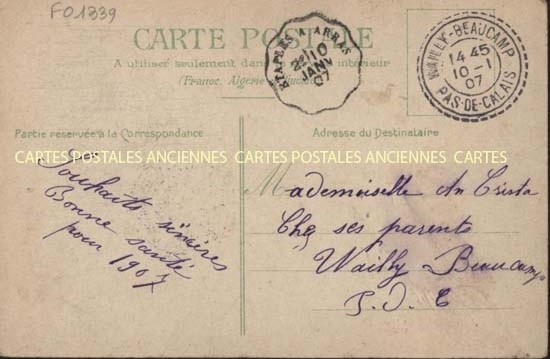 FO1339
CARTE POSTALE
A utiliser seulement dans intérieur
(France, Algérie
ETAPLES A ARRAS
2E/10
JANV
07
WAILLY-BEAUCAMP
14 45
10-1
07
PAS-DE-CALAIS
Partie réservée à la Correspondance
Adresse du Destinataire
CARTES POSTALES ANCIENNES CARTES POSTALES ANCIENNES CARTES
Souhaits sincères
Bonne santé
pour 1907
Mademoiselle
Chez ses parents
Wailly Beaucamp
P. D. C